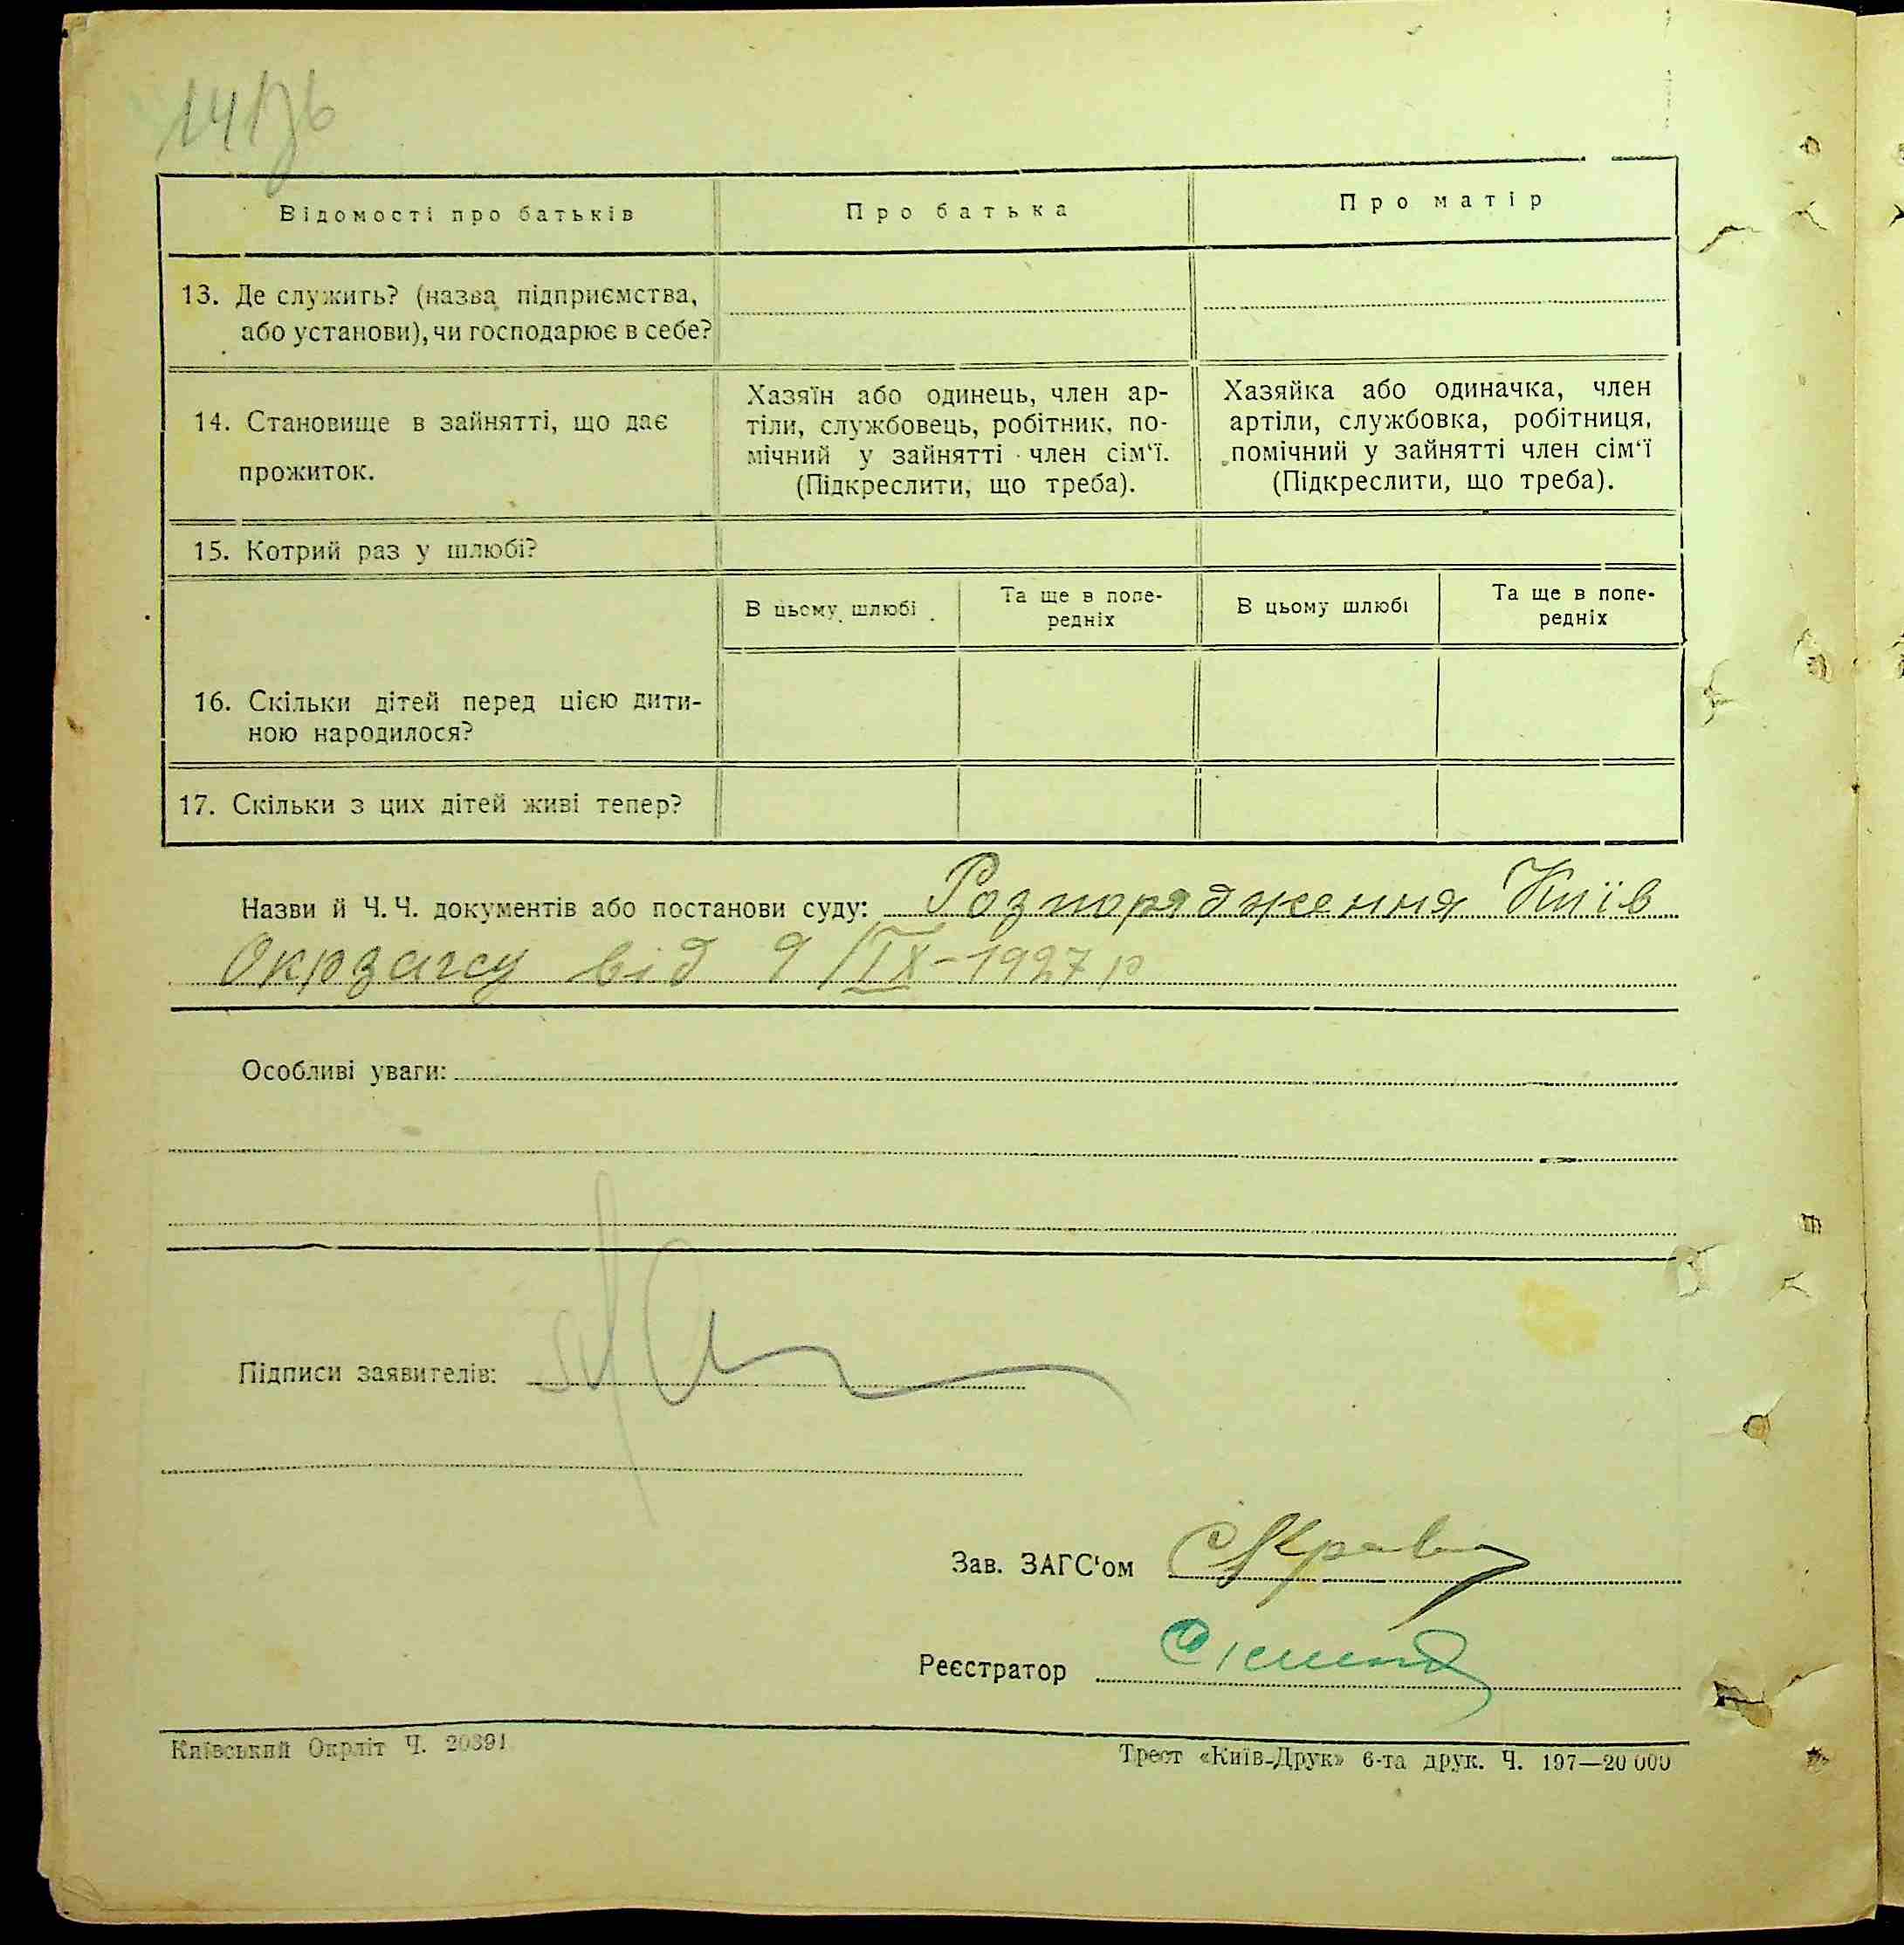 Відомості про батьків
Про батька
Про матір
13. Де служить? (назва підприємства,
або установи), чи господарює в себе?
14. Становище в зайнятті, що дає
прожиток.
Хазяїн або одинець, член ар-
тіли, службовець, робітник, по-
мічний у зайнятті член сім‘ї.
(Підкреслити, що треба).
Хазяйка або одиначка, член
артіли, службовка, робітниця,
помічний у зайнятті член сім‘ї
(Підкреслити, що треба).
15. Котрий раз у шлюбі?
В цьому шлюбі
Та ще в попе-
редніх
В цьому шлюбі
Та ще в попе-
редніх
16. Скільки дітей перед цією дити-
ною народилося?
17. Скільки з цих дітей живі тепер?
Назви й Ч. Ч. документів або постанови суду: Розпорядження Київ
Окрзагсу від 9/IX-1927 р
Особливі уваги:
Підписи заявителів:
Зав. ЗАГС‘ом
Реєстратор
Київський Окрліт Ч. 20391
Трест «Київ-Друк» 6-та друк. Ч. 197—20 000